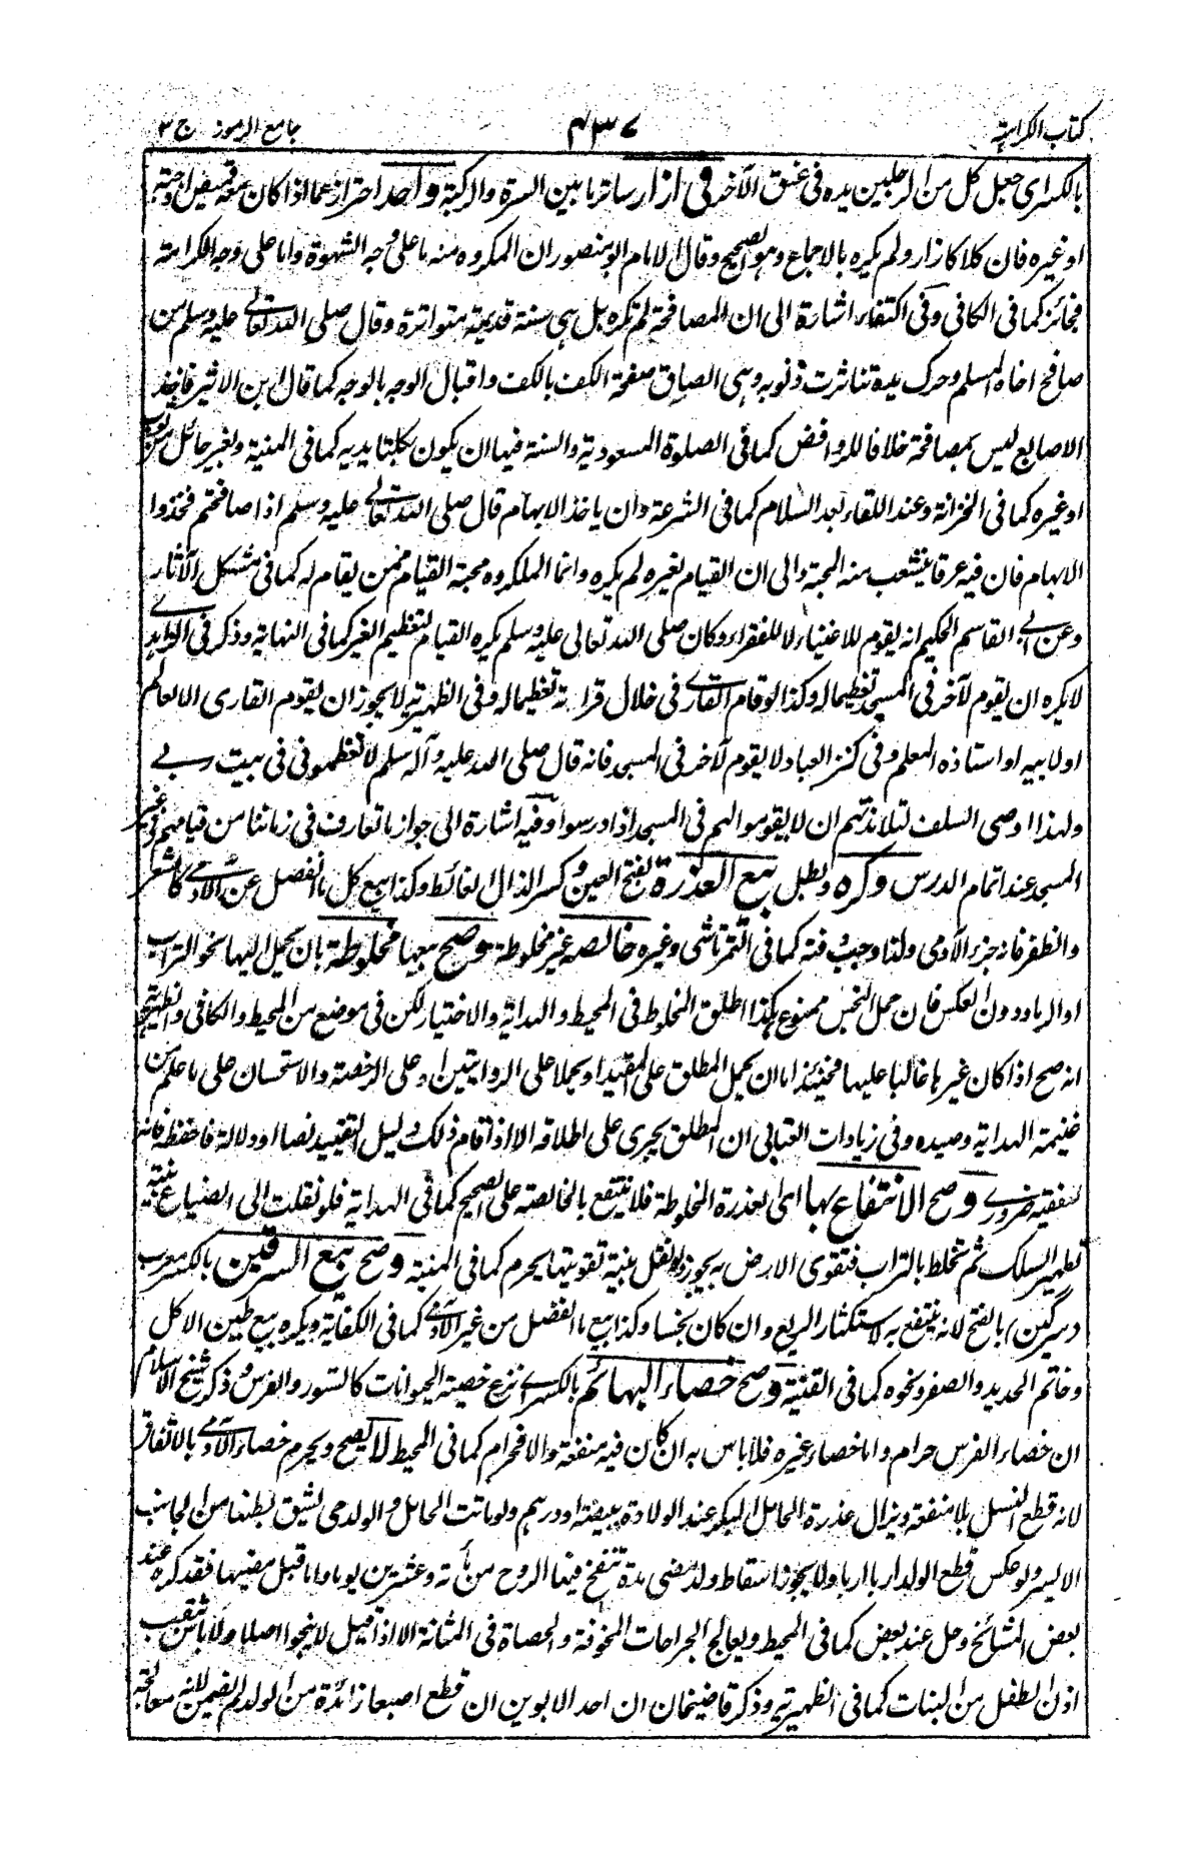 كتاب الكراهية
٤٣٧
جامع الرموز ج ٣
بالكسراى جعل كل من الرجلين يده فى عنق الآخر فى ازار ساتر ما بين السرة والركبة واحد احتراز عما اذا كان معه قميص او جبة
او غيره فان كلا كازار ولم يكره بالاجماع وهو الصحيح وقال الامام ابو منصور ان المكروه منه ما على وجه الشهوة واما على وجه الكرامة
فجائز كما فى الكافى وفى اكتفاء اشارة الى ان المصافحة لم تكره بل هى سنة قديمة متواترة وقال صلى الله تعالى عليه وسلم من
صافح اخاه المسلم وحرك يده تناثرت ذنوبه وهى الصاق صفحة الكف بالكف واقبال الوجه بالوجه كما قال ابن الاثير فاخذ
الاصابع ليس بمصافحة خلافا للروافض كما فى الصلوة المسعودية والسنة فيها ان يكون بكلتا يديه كما فى المنية وبغير حائل من ثوب
او غيره كما فى الخزانة وعند اللقاء بعد السلام كما فى الشرعة وان ياخذ الابهام قال صلى الله تعالى عليه وسلم اذا صافحتم فخذوا
الابهام فان فيه عرقا ينشعب منه المحبة والى ان القيام لغيره لم يكره وانما المكروه محبة القيام ممن يقام له كما فى مشكل الآثار
وعن ابى القاسم الحكيم انه يقوم للاغنياء لا للفقراء وكان صلى الله تعالى عليه وسلم يكره القيام لتعظيم الغير كما فى النهاية وذكر فى الزاهدى
لا يكره ان يقوم لآخر فى المسجد تعظيما له وكذا لو قام القارى فى خلال قراءته تعظيما له وفى الظهيرية لا يجوز ان يقوم القارى الا لعالم
او لابيه او استاذه المعلم وفى كنز العباد لا يقوم لآخر فى المسجد فانه قال صلى الله عليه وآله سلم لا تعظمونى فى بيت ربى
ولهذا اوصى السلف لتلامذتهم ان لا يقوموا لهم فى المسجد اذا درسوا وفيه اشارة الى جواز ما تعارف فى زماننا من قيامهم فى غير
المسجد عند اتمام الدرس وكره وبطل بيع العذرة بفتح العين وكسر الذال الغائط وكذا بيع كل ما انفصل عن الآدمى كالشعر
والظفر فانه جزء الآدمى ولذا وجب دفنه كما فى التمرتاشى وغيره خالصة غير مخلوطة وصح بيعها مخلوطة بان يحمل اليها نحو التراب
او الرماد دون العكس فان حمل النجس ممنوع هكذا اطلق المخلوط فى المحيط والهداية والاختيار لكن فى موضع من المحيط والكافى والظهيرية
انه صح اذا كان غيرها غالبا عليها فحينئذ اما ان يحمل المطلق على المقيد او يحملا على الروايتين او على الرخصة والاستحسان على ما علم من
غنيمة الهداية وصيده وفى زيادات العتابى ان المطلق يجرى على اطلاقه الا اذا قام ذلك دليل التقييد نصا او دلالة فاحفظه فانه
للفقيه ضرورى وصح الانتفاع بها اى العذرة المخلوطة فلا ينتفع بالخالصة على الصحيح كما فى الهداية فلو نقلت الى الضياع بنية
تطهير السلك ثم تخلط بالتراب فتقوى الارض به يجوز ولو نقل بنية تقويتها يحرم كما فى المنية وصح بيع السرقين بالكسر معرب
(سرگين) بالفتح لانه ينتفع به لاستكثار الريع وان كان نجسا وكذا بيع ما انفصل من غير الآدمى كما فى الكفاية ويكره بيع طين الاكل
وخاتم الحديد والصفر ونحوه كما فى القنية وصح خصاء البهائم بالكسر اى نزع خصية الحيوانات كالسنور والفرس وذكر شيخ الاسلام
ان خصاء الفرس حرام واما خصاء غيره فلا باس به ان كان فيه منفعة والا فحرام كما فى المحيط لا يصح ويحرم خصاء الآدمى بالاتفاق
لانه قطع النسل بلا منفعة ويزال عذرة الحامل البكر عند الولادة ببيضة او درهم ولو ماتت الحامل والولد حى يشق بطنها من الجانب
الايسر ولو عكس قطع الولد اربا اربا ولا يجوز اسقاط ولد مضى مدة تنفخ فيها الروح من مائة وعشرين يوما واما قبل مضيها فقد كره عند
بعض المشائخ وحل عند بعض كما فى المحيط ويعالج الجراحات المخوفة والحصاة فى المثانة الا اذا قيل لا ينجوا اصلا ولا باس بثقب
اذن الطفل من البنات كما فى الظهيرية وذكر قاضيخان ان احد الابوين ان قطع اصبعا زائدة من الولد لم يضمن لانه معالجة